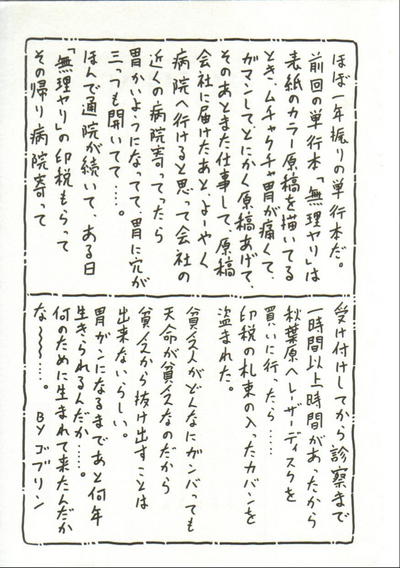 ほぼ一年振りの単行本だ。
前回の単行本「無理ヤリ」は
表紙のカラー原稿を描いてる
とき、ムチャクチャ胃が痛くて、
ガマンしてとにかく原稿あげて、
そのあとまた仕事して、原稿
会社に届けたあと、よーやく
病院へ行けると思って会社の
近くの病院寄ってったら
胃かいようになってて、胃に穴が
三つも開いてて……。
ほんで通院が続いて、ある日
「無理ヤリ」の印税もらって
その帰り病院寄って
受け付けしてから診察まで
一時間以上時間があったから
秋葉原へレーザーディスクを
買いに行ったら……
印税の札束の入ったカバンを
盗まれた。
貧乏人がどんなにガンバっても
天命が貧乏なのだから
貧乏から抜け出すことは
出来ないらしい。
胃ガンになるまであと何年
生きられるんだか……。
何のために生まれて来たんだか
な〜〜〜……。 BYゴブリン